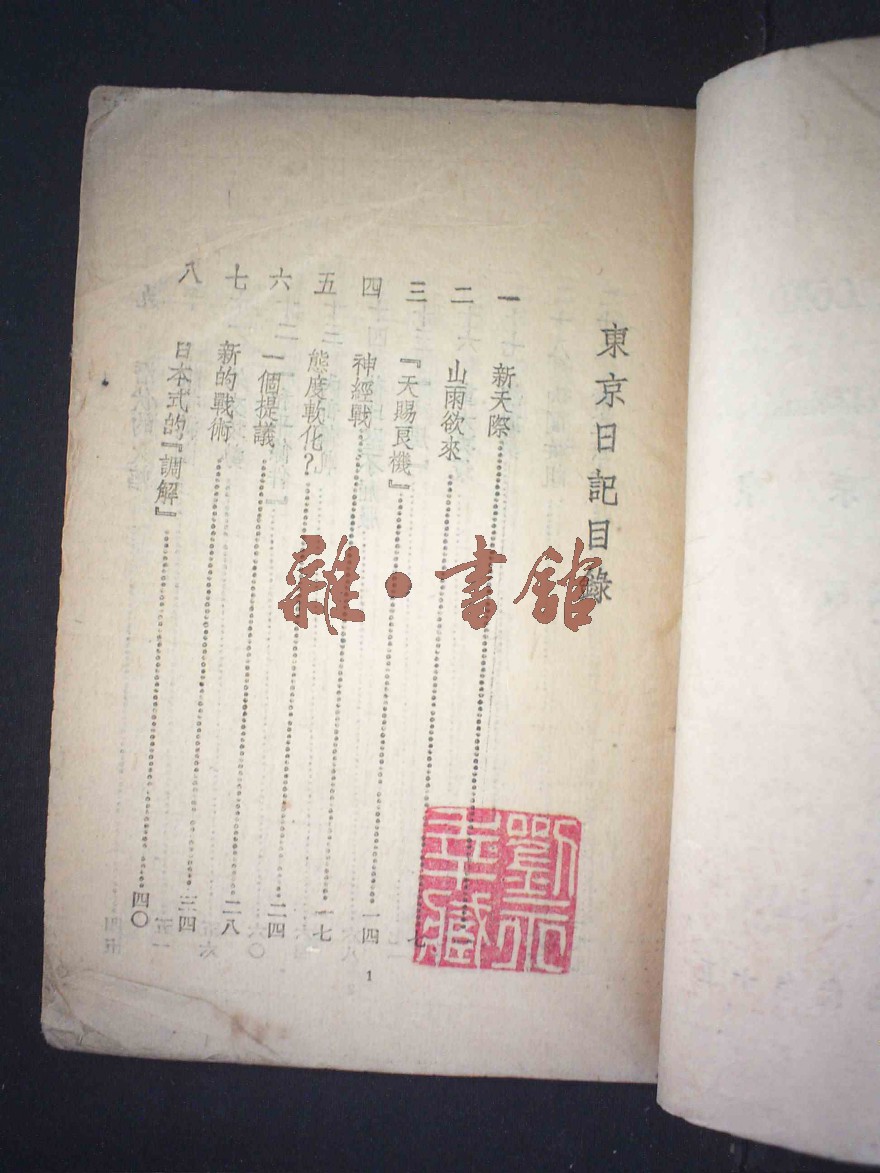 東京日記目錄
一 新天際
二 山雨欲來……七
三 『天賜良機』……一四
四 神經戰……一七
五 態度軟化？……二四
六 一個提議……二八
七 新的戰術……三四
八 日本式的『調解』……四〇
1
雜·書館